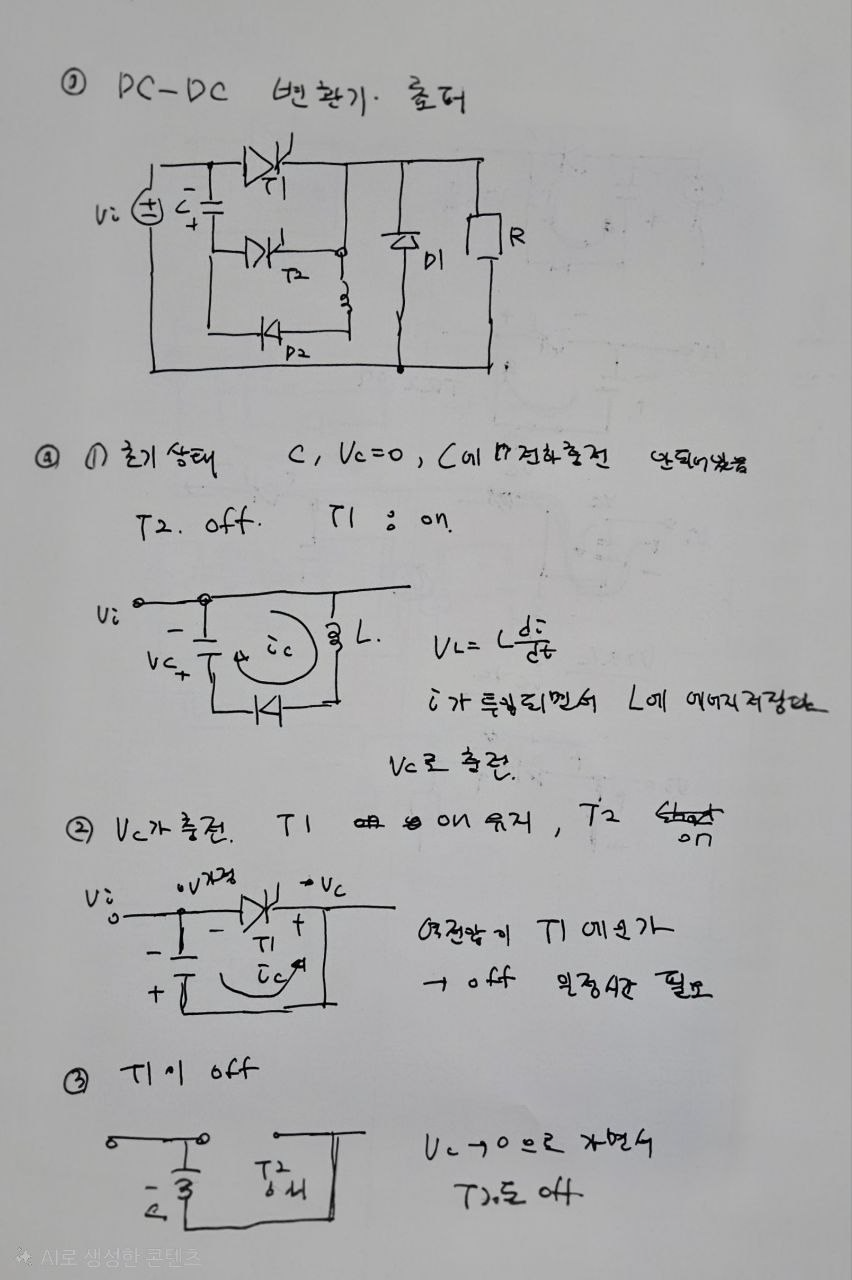 ② DC-DC 변환기. 쵸퍼
Vi
C
-
+
T1
T2
D2
D1
R
③ ① 초기상태 C, Vc=0, C에 전하충전 안되어있음
T2. off. T1 : on.
Vi
-
Vc
+
ic
L.
VL= L di/dt
i가 투입되면서 L에 에너지저장
Vc로 충전.
② Vc가 충전. T1 on 유지, T2 on
Vi
→Vc
-
T1
+
-
+
ic
역전압이 T1에 인가
→ off 일정시간 필요
③ T1이 off
-
T2
Vc→0으로 가면서
T2도 off
AI로 생성한 콘텐츠